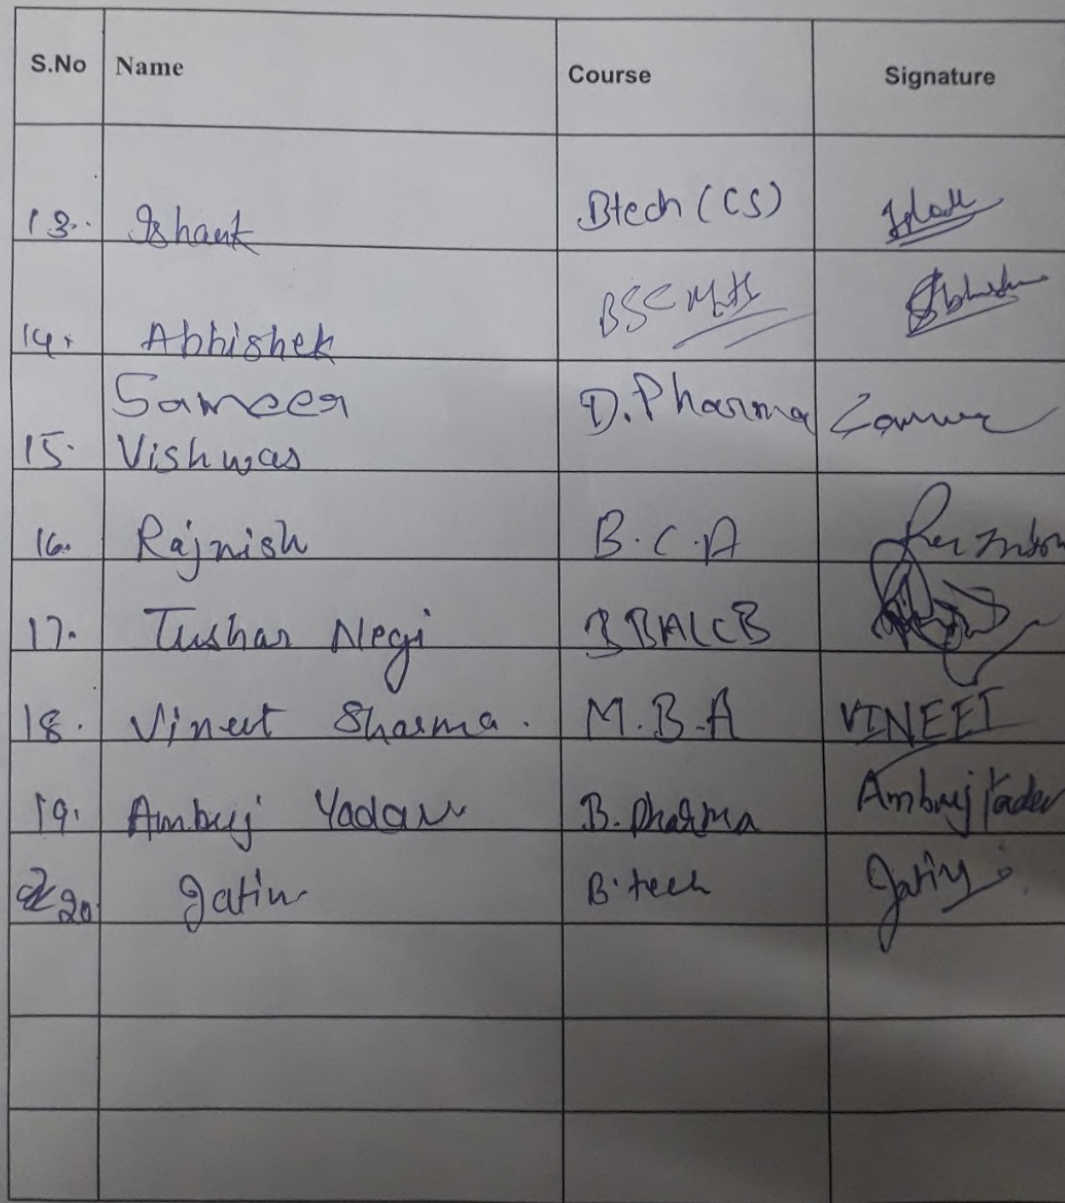 S.No Name Course Signature
13. Ishant Btech (CS)
14. Abhishek BSC
Sameer D. Pharma
15. Vishwas
16. Rajnish B.C.A
17. Tushar Negi BBALLB
18. Vineet Sharma. M.B.A VINEET
19. Ambuj Yadav B. Pharma Ambuj Yadav
20. Jatin B.tech Jatin